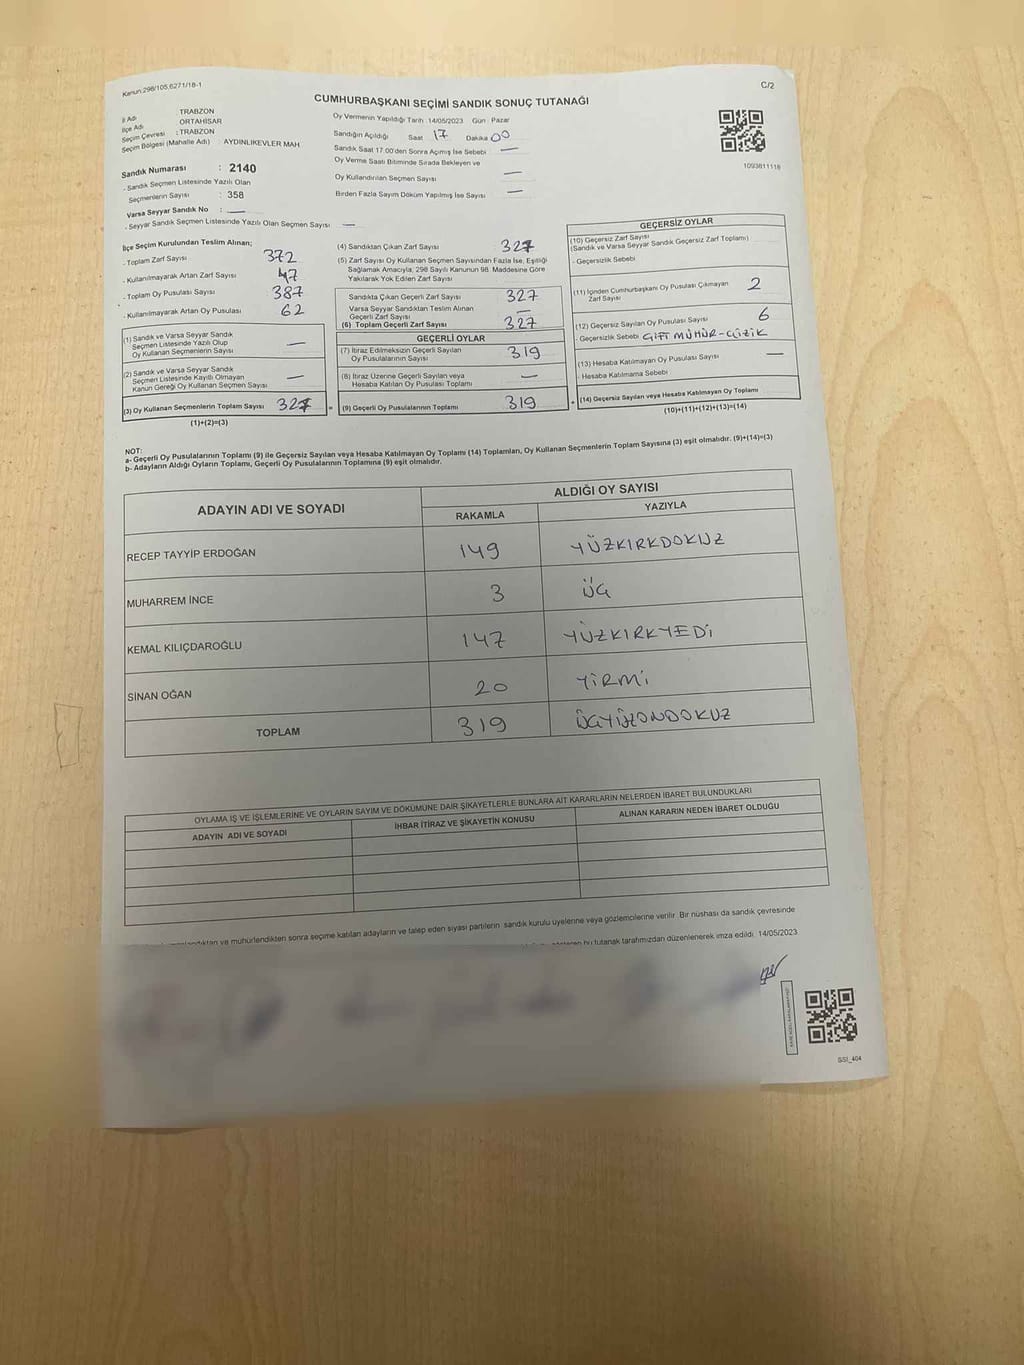 Kanun:298/105,6271/18-1
C/2
CUMHURBAŞKANI SEÇİMİ SANDIK SONUÇ TUTANAĞI
İl Adı : TRABZON
İlçe Adı : ORTAHİSAR
Seçim Çevresi : TRABZON
Seçim Bölgesi (Mahalle Adı) : AYDINLIKEVLER MAH
Sandık Numarası : 2140
- Sandık Seçmen Listesinde Yazılı Olan
Seçmenlerin Sayısı : 358
Varsa Seyyar Sandık No : —
- Seyyar Sandık Seçmen Listesinde Yazılı Olan Seçmen Sayısı —
Oy Vermenin Yapıldığı Tarih :14/05/2023 Gün : Pazar
Sandığın Açıldığı Saat 17 Dakika 00
Sandık Saat 17.00'den Sonra Açımış İse Sebebi —
Oy Verme Saati Bitiminde Sırada Bekleyen ve
Oy Kullandırılan Seçmen Sayısı —
Birden Fazla Sayım Döküm Yapılmış İse Sayısı —
1093811118
İlçe Seçim Kurulundan Teslim Alınan;
- Toplam Zarf Sayısı 372
- Kullanılmayarak Artan Zarf Sayısı 47
- Toplam Oy Pusulası Sayısı 387
- Kullanılmayarak Artan Oy Pusulası 62
(1) Sandık ve Varsa Seyyar Sandık
Seçmen Listesinde Yazılı Olup
Oy Kullanan Seçmenlerin Sayısı —
(2) Sandık ve Varsa Seyyar Sandık
Seçmen Listesinde Kayıtlı Olmayan
Kanun Gereği Oy Kullanan Seçmen Sayısı —
(3) Oy Kullanan Seçmenlerin Toplam Sayısı 327
(1)+(2)=(3)
(4) Sandıktan Çıkan Zarf Sayısı 327
(5) Zarf Sayısı Oy Kullanan Seçmen Sayısından Fazla İse, Eşitliği
Sağlamak Amacıyla, 298 Sayılı Kanunun 98. Maddesine Göre
Yakılarak Yok Edilen Zarf Sayısı
Sandıkta Çıkan Geçerli Zarf Sayısı 327
Varsa Seyyar Sandıktan Teslim Alınan
Geçerli Zarf Sayısı —
(6) Toplam Geçerli Zarf Sayısı 327
GEÇERLİ OYLAR
(7) İtiraz Edilmeksizin Geçerli Sayılan
Oy Pusulalarının Sayısı 319
(8) İtiraz Üzerine Geçerli Sayılan veya
Hesaba Katılan Oy Pusulası Toplamı —
= (9) Geçerli Oy Pusulalarının Toplamı 319
GEÇERSİZ OYLAR
(10) Geçersiz Zarf Sayısı
(Sandık ve Varsa Seyyar Sandık Geçersiz Zarf Toplamı)
- Geçersizlik Sebebi
(11) İçinden Cumhurbaşkanı Oy Pusulası Çıkmayan
Zarf Sayısı 2
(12) Geçersiz Sayılan Oy Pusulası Sayısı 6
- Geçersizlik Sebebi ÇİFT MÜHÜR-ÇİZİK
(13) Hesaba Katılmayan Oy Pusulası Sayısı —
- Hesaba Katılmama Sebebi
+ (14) Geçersiz Sayılan veya Hesaba Katılmayan Oy Toplamı
(10)+(11)+(12)+(13)=(14)
NOT:
a- Geçerli Oy Pusulalarının Toplamı (9) ile Geçersiz Sayılan veya Hesaba Katılmayan Oy Toplamı (14) Toplamları, Oy Kullanan Seçmenlerin Toplam Sayısına (3) eşit olmalıdır. (9)+(14)=(3)
b- Adayların Aldığı Oyların Toplamı, Geçerli Oy Pusulalarının Toplamına (9) eşit olmalıdır.
ADAYIN ADI VE SOYADI
ALDIĞI OY SAYISI
RAKAMLA YAZIYLA
RECEP TAYYİP ERDOĞAN 149 YÜZKIRKDOKUZ
MUHARREM İNCE 3 ÜÇ
KEMAL KILIÇDAROĞLU 147 YÜZKIRKYEDİ
SİNAN OĞAN 20 YİRMİ
TOPLAM 319 ÜÇYÜZONDOKUZ
OYLAMA İŞ VE İŞLEMLERİNE VE OYLARIN SAYIM VE DÖKÜMÜNE DAİR ŞİKAYETLERLE BUNLARA AİT KARARLARIN NELERDEN İBARET BULUNDUKLARI
ADAYIN ADI VE SOYADI İHBAR İTİRAZ VE ŞİKAYETİN KONUSU ALINAN KARARIN NEDEN İBARET OLDUĞU
ve mühürlendikten sonra seçime katılan adayların ve talep eden siyasi partilerin sandık kurulu üyelerine veya gözlemcilerine verilir. Bir nüshası da sandık çevresinde
bu tutanak tarafımızdan düzenlenerek imza edildi. 14/05/2023
SSI_404